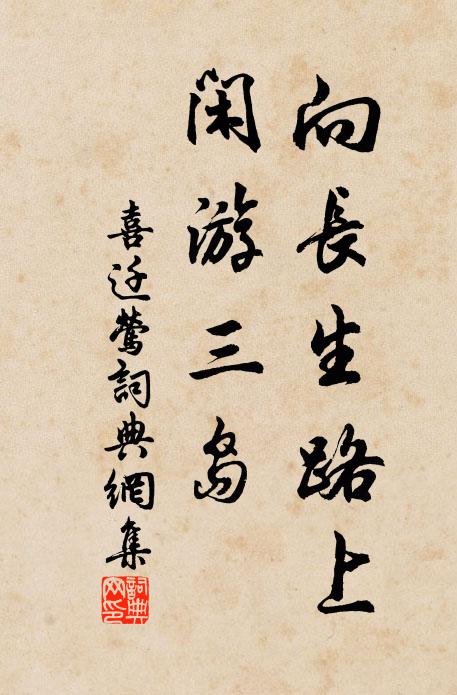 向長生路上
閑游三島
喜迁鶯詞典網集
詞典网印